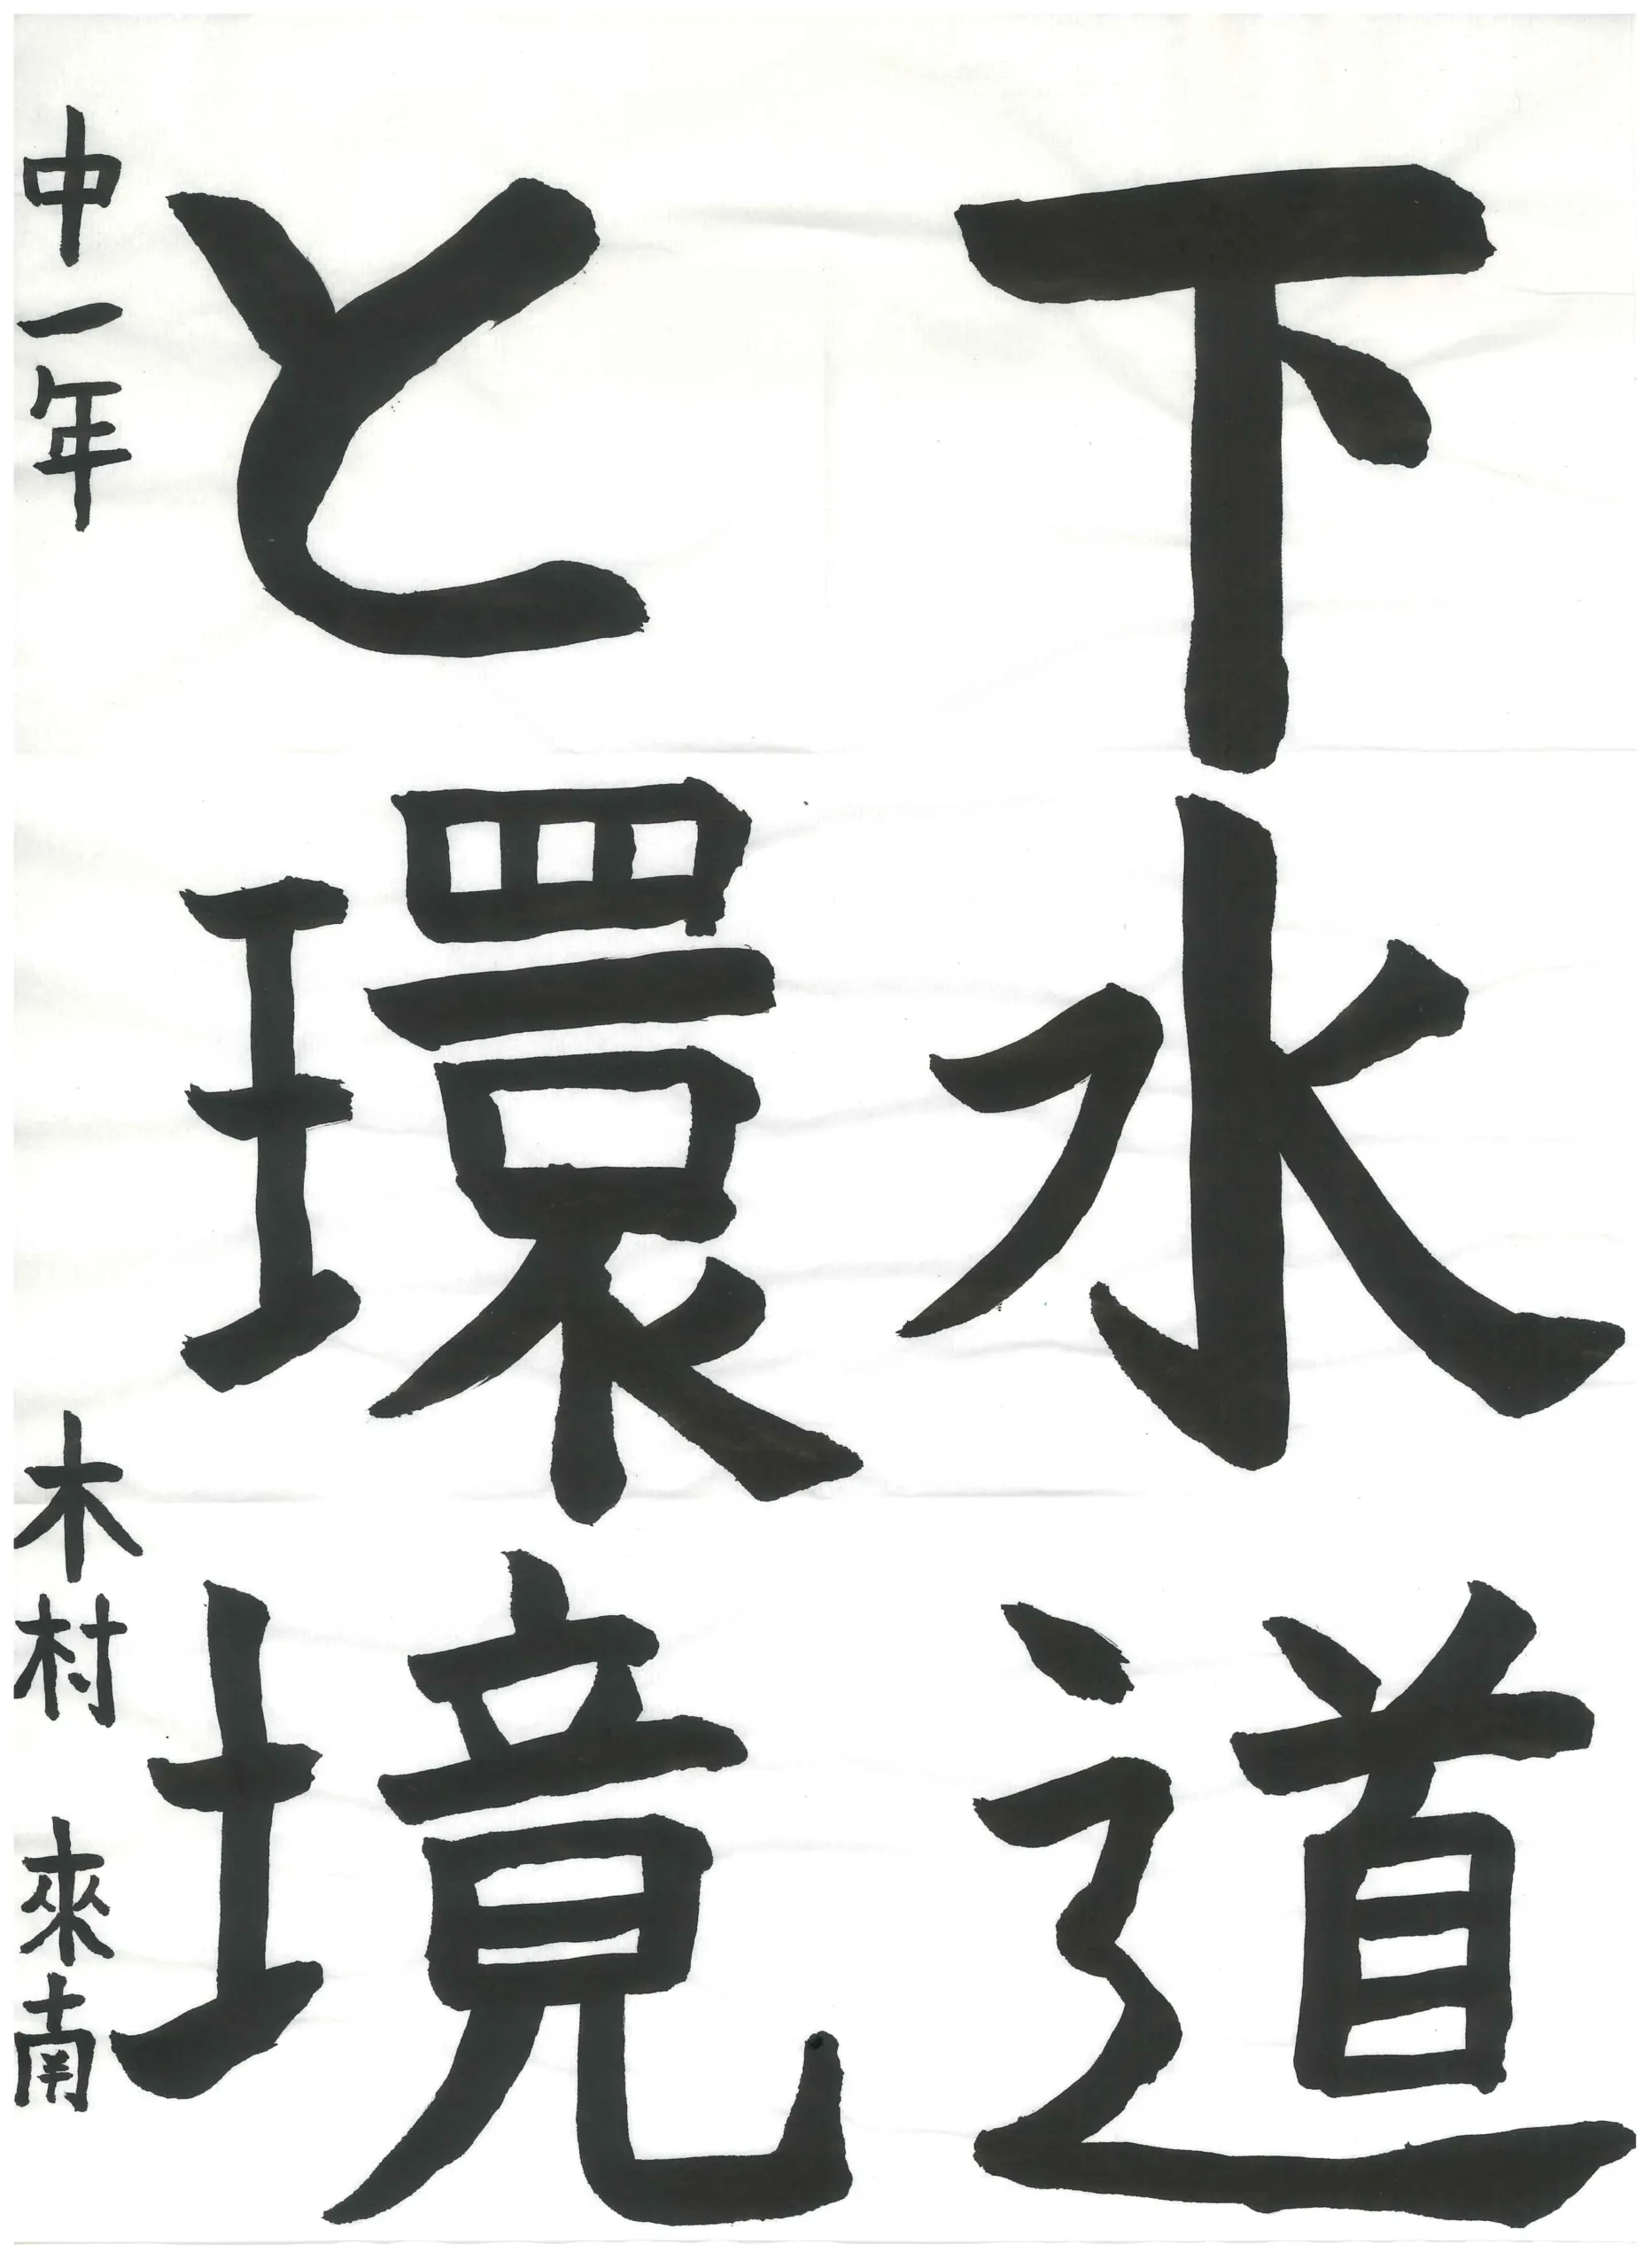 下水道
と環境
中一年 木村 來南